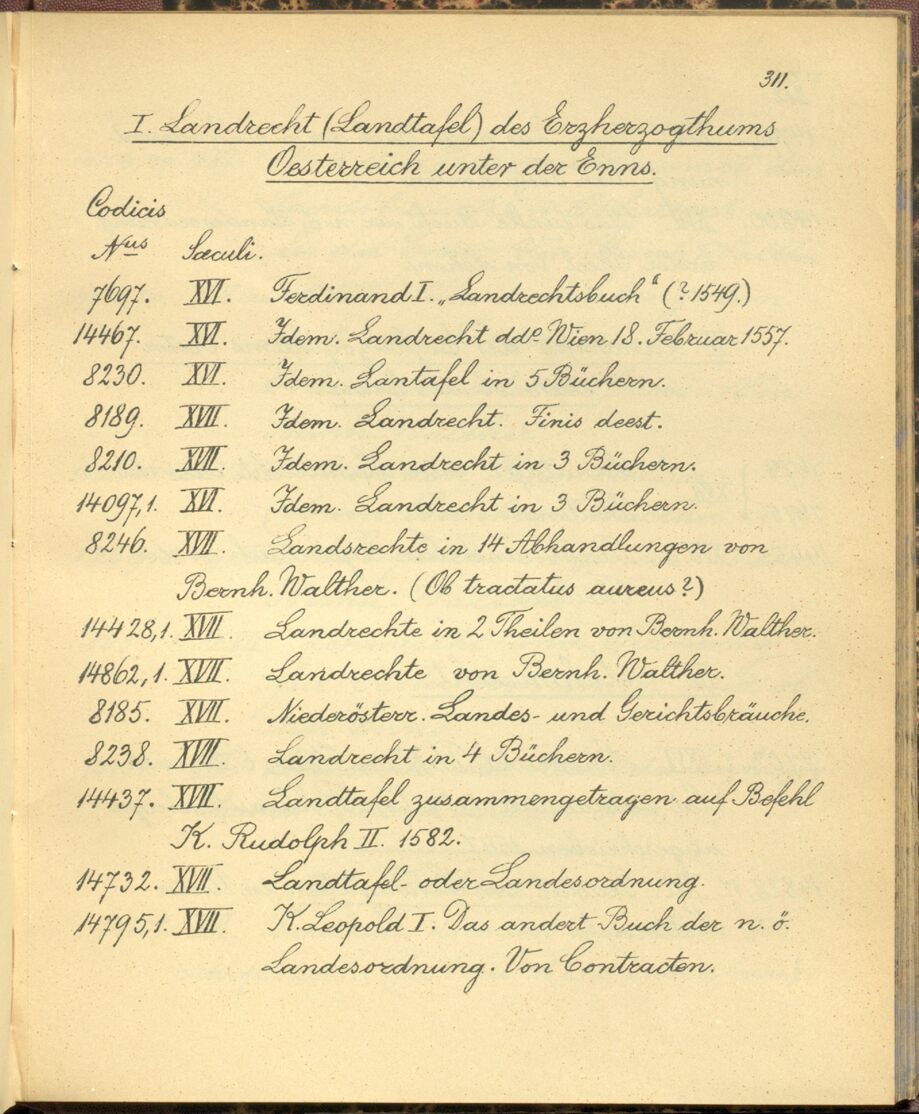 311.
I. Landrecht (Landtafel) des Erzherzogthums
Oesterreich unter der Enns.
Codicis
Nus Sæculi.
7697. XVI. Ferdinand I. „Landrechtsbuch“ (? 1549.)
14467. XVI. Idem. Landrecht ddo Wien 18. Februar 1557.
8230. XVI. Idem. Lantafel in 5 Büchern.
8189. XVII. Idem. Landrecht. Finis deest.
8210. XVII. Idem. Landrecht in 3 Büchern.
14097,1. XVI. Idem. Landrecht in 3 Büchern.
8246. XVII. Landsrechte in 14 Abhandlungen von
Bernh. Walther. (Ob tractatus aureus?)
14428,1. XVII. Landrechte in 2 Theilen von Bernh. Walther.
14862,1. XVII. Landrechte von Bernh. Walther.
8185. XVII. Niederösterr. Landes- und Gerichtsbräuche.
8238. XVII. Landrecht in 4 Büchern.
14437. XVII. Landtafel zusammengetragen auf Befehl
K. Rudolph II. 1582.
14732. XVII. Landtafel- oder Landesordnung.
14795,1. XVII. K. Leopold I. Das andert Buch der n. ö.
Landesordnung. Von Contracten.